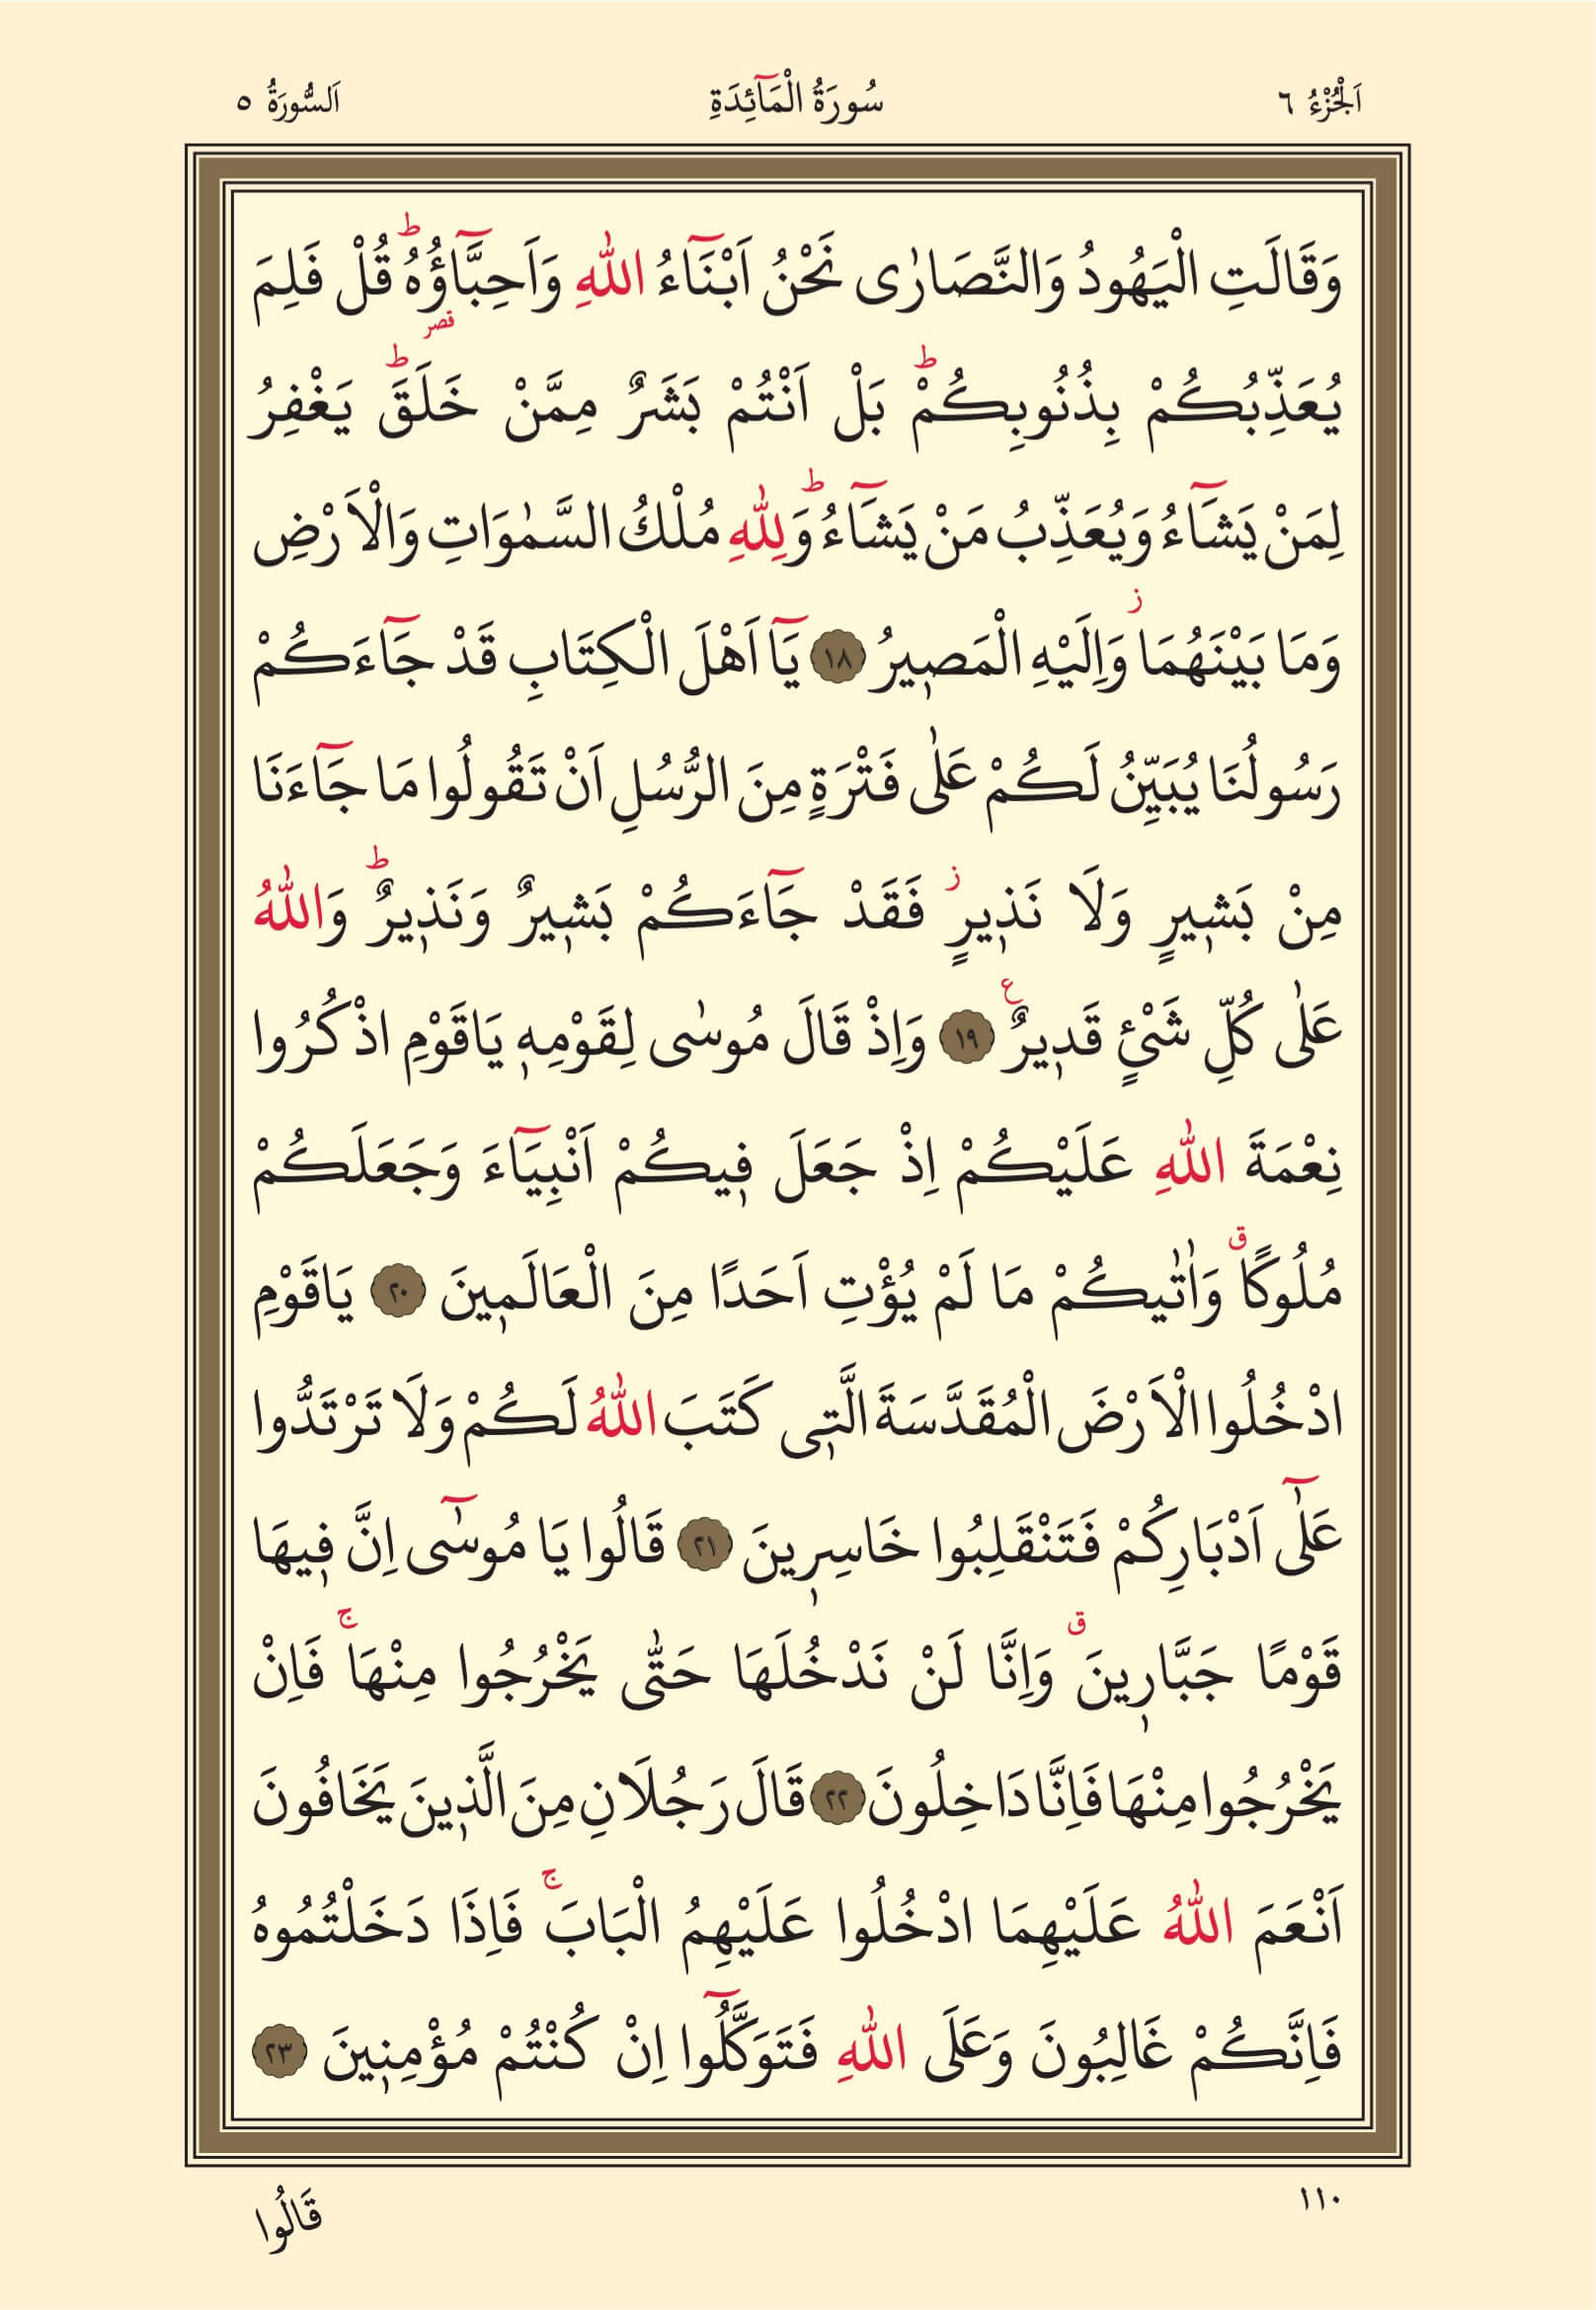 اَلْجُزْءُ ٦ سُورَةُ الْمَٓائِدَةِ اَلسُّورَةُ ٥
وَقَالَتِ الْيَهُودُ وَالنَّصَارٰى نَحْنُ اَبْنَٓاءُ اللّٰهِ وَاَحِبَّٓاؤُ۬هُۜ قُلْ فَلِمَ
قصر
يُعَذِّبُكُمْ بِذُنُوبِكُمْۜ بَلْ اَنْتُمْ بَشَرٌ مِمَّنْ خَلَقَۜ يَغْفِرُ
لِمَنْ يَشَٓاءُ وَيُعَذِّبُ مَنْ يَشَٓاءُۜ وَلِلّٰهِ مُلْكُ السَّمٰوَاتِ وَالْاَرْضِ
وَمَا بَيْنَهُمَاۘ وَاِلَيْهِ الْمَصٖيرُ ١٨ يَٓا اَهْلَ الْكِتَابِ قَدْ جَٓاءَكُمْ
رَسُولُنَا يُبَيِّنُ لَكُمْ عَلٰى فَتْرَةٍ مِنَ الرُّسُلِ اَنْ تَقُولُوا مَا جَٓاءَنَا
مِنْ بَشٖيرٍ وَلَا نَذٖيرٍؗ فَقَدْ جَٓاءَكُمْ بَشٖيرٌ وَنَذٖيرٌۜ وَاللّٰهُ
عَلٰى كُلِّ شَیْءٍ قَدٖيرٌࣖ ١٩ وَاِذْ قَالَ مُوسٰى لِقَوْمِهٖ يَاقَوْمِ اذْكُرُوا
نِعْمَةَ اللّٰهِ عَلَيْكُمْ اِذْ جَعَلَ فٖيكُمْ اَنْبِيَٓاءَ وَجَعَلَكُمْ
مُلُوكًاࣗ وَاٰتٰيكُمْ مَا لَمْ يُؤْتِ اَحَدًا مِنَ الْعَالَمٖينَ ٢٠ يَاقَوْمِ
ادْخُلُوا الْاَرْضَ الْمُقَدَّسَةَ الَّتٖى كَتَبَ اللّٰهُ لَكُمْ وَلَا تَرْتَدُّوا
عَلٰٓى اَدْبَارِكُمْ فَتَنْقَلِبُوا خَاسِرٖينَ ٢١ قَالُوا يَا مُوسٰٓى اِنَّ فٖيهَا
قَوْمًا جَبَّارٖينَࣗ وَاِنَّا لَنْ نَدْخُلَهَا حَتّٰى يَخْرُجُوا مِنْهَاۚ فَاِنْ
يَخْرُجُوا مِنْهَا فَاِنَّا دَاخِلُونَ ٢٢ قَالَ رَجُلَانِ مِنَ الَّذٖينَ يَخَافُونَ
اَنْعَمَ اللّٰهُ عَلَيْهِمَا ادْخُلُوا عَلَيْهِمُ الْبَابَۚ فَاِذَا دَخَلْتُمُوهُ
فَاِنَّكُمْ غَالِبُونَ وَعَلَى اللّٰهِ فَتَوَكَّلُٓوا اِنْ كُنْتُمْ مُؤْمِنٖينَ ٢٣
١١٠ قَالُوا